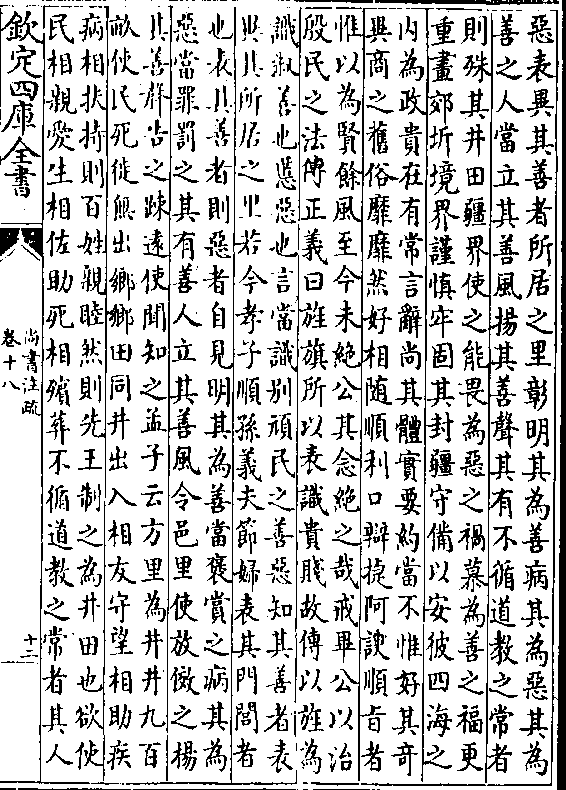 惡表異其善者所居之里彰明其為善病其為惡其為
善之人當立其善風揚其善聲其有不循道教之常者
則殊其井田疆界使之能畏為惡之禍慕為善之福更
重畫郊圻境界謹慎牢固其封疆守備以安彼四海之
内為政貴在有常言辭尚其體實要約當不惟好其竒
異商之舊俗靡靡然好相随順利口辯捷阿諛順㫖者
惟以為賢餘風至今未絶公其念絶之哉戒畢公以治
殷民之法傳正義曰旌旗所以表識貴賤故傳以旌為
識淑善也慝惡也言當識别頑民之善惡知其善者表
異其所居之里若今孝子順孫義夫節婦表其門閭者
也表其善者則惡者自見明其為善當褒賞之病其為
惡當罪罰之其有善人立其善風令邑里使放傚之揚
其善聲告之踈遠使聞知之孟子云方里為井井九百
畝使民死徙無出鄉鄉田同井出入相友守望相助疾
病相扶持則百姓親睦然則先王制之為井田也欲使
民相親愛生相佐助死相殯葬不循道教之常者其人
欽定四庫全書
尚書注疏
卷十八
十二